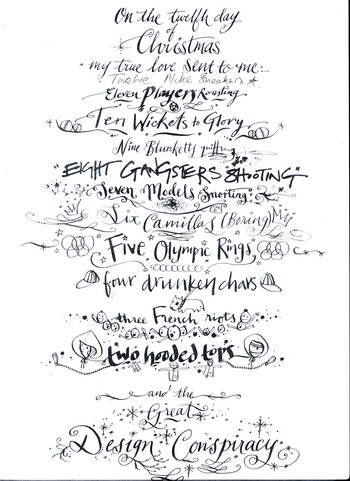 On the twelfth day
of
Christmas
my true love sent to me...
Twelve Nike Sneakers
Eleven Players Roasting
Ten Wickets to Glory
Nine Blunketts
"EIGHT GANGSTERS SHOOTING"
Seven Models Snorting
Six Camillas (Boring)
Five Olympic Rings
four drunken chavs
three French riots
two hooded tops
and the
Great
Design Conspiracy